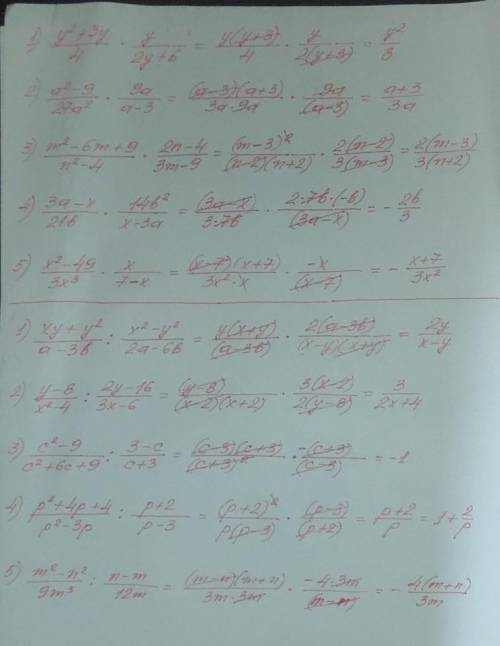 1) \frac{y²+3y}{4} · \frac{y}{2y+6} = \frac{y(y+3)}{4} · \frac{y}{2(y+3)} = \frac{y²}{8}
2) \frac{a²-9}{27a²} · \frac{9a}{a-3} = \frac{(a-3)(a+3)}{3a·9a} · \frac{9a}{(a-3)} = \frac{a+3}{3a}
3) \frac{m²-6m+9}{n²-4} · \frac{2n-4}{3m-9} = \frac{(m-3)²}{(n-2)(n+2)} · \frac{2(n-2)}{3(m-3)} = \frac{2(m-3)}{3(n+2)}
4) \frac{3a-x}{21b} · \frac{14b²}{x-3a} = \frac{(3a-x)}{3·7b} · \frac{2·7b·(-b)}{(3a-x)} = -\frac{2b}{3}
5) \frac{x²-49}{3x³} · \frac{x}{7-x} = \frac{(x-7)(x+7)}{3x²·x} · \frac{-x}{(x-7)} = -\frac{x+7}{3x²}
1) \frac{xy+y²}{a-3b} : \frac{x²-y²}{2a-6b} = \frac{y(x+y)}{(a-3b)} · \frac{2(a-3b)}{(x-y)(x+y)} = \frac{2y}{x-y}
2) \frac{y-8}{x²-4} : \frac{2y-16}{3x-6} = \frac{(y-8)}{(x-2)(x+2)} · \frac{3(x-2)}{2(y-8)} = \frac{3}{2x+4}
3) \frac{c²-9}{c²+6c+9} : \frac{3-c}{c+3} = \frac{(c-3)(c+3)}{(c+3)²} · \frac{-(c+3)}{(c-3)} = -1
4) \frac{p²+4p+4}{p²-3p} : \frac{p+2}{p-3} = \frac{(p+2)²}{p(p-3)} · \frac{(p-3)}{(p+2)} = \frac{p+2}{p} = 1+\frac{2}{p}
5) \frac{m²-n²}{9m³} : \frac{n-m}{12m} = \frac{(m-n)(m+n)}{3m·3m} · \frac{-4·3m}{(m-n)} = -\frac{4(m+n)}{3m}